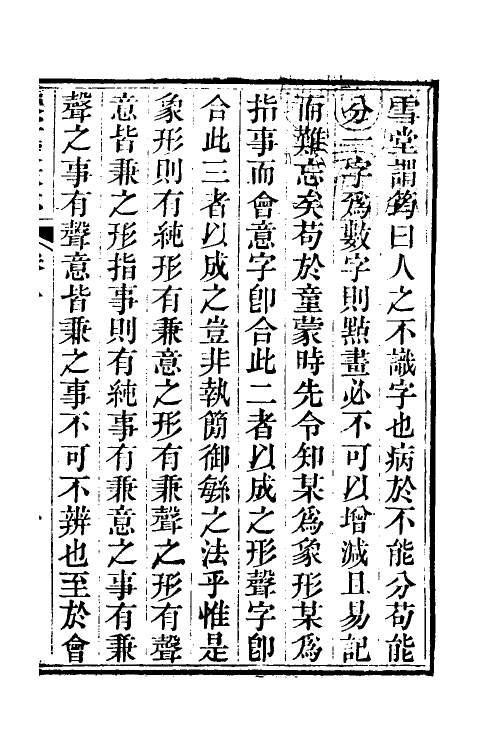 雪堂謂筠曰人之不識字也病於不能分苟能
分一字爲數字則點畫必不可以增減且易記
而難忘矣苟於童蒙時先令知某爲象形某爲
指事而會意字卽合此二者以成之形聲字卽
合此三者以成之豈非執簡御緐之法乎惟是
象形則有純形有兼意之形有兼聲之形有聲
意皆兼之形指事則有純事有兼意之事有兼
聲之事有聲意皆兼之事不可不辨也至於會